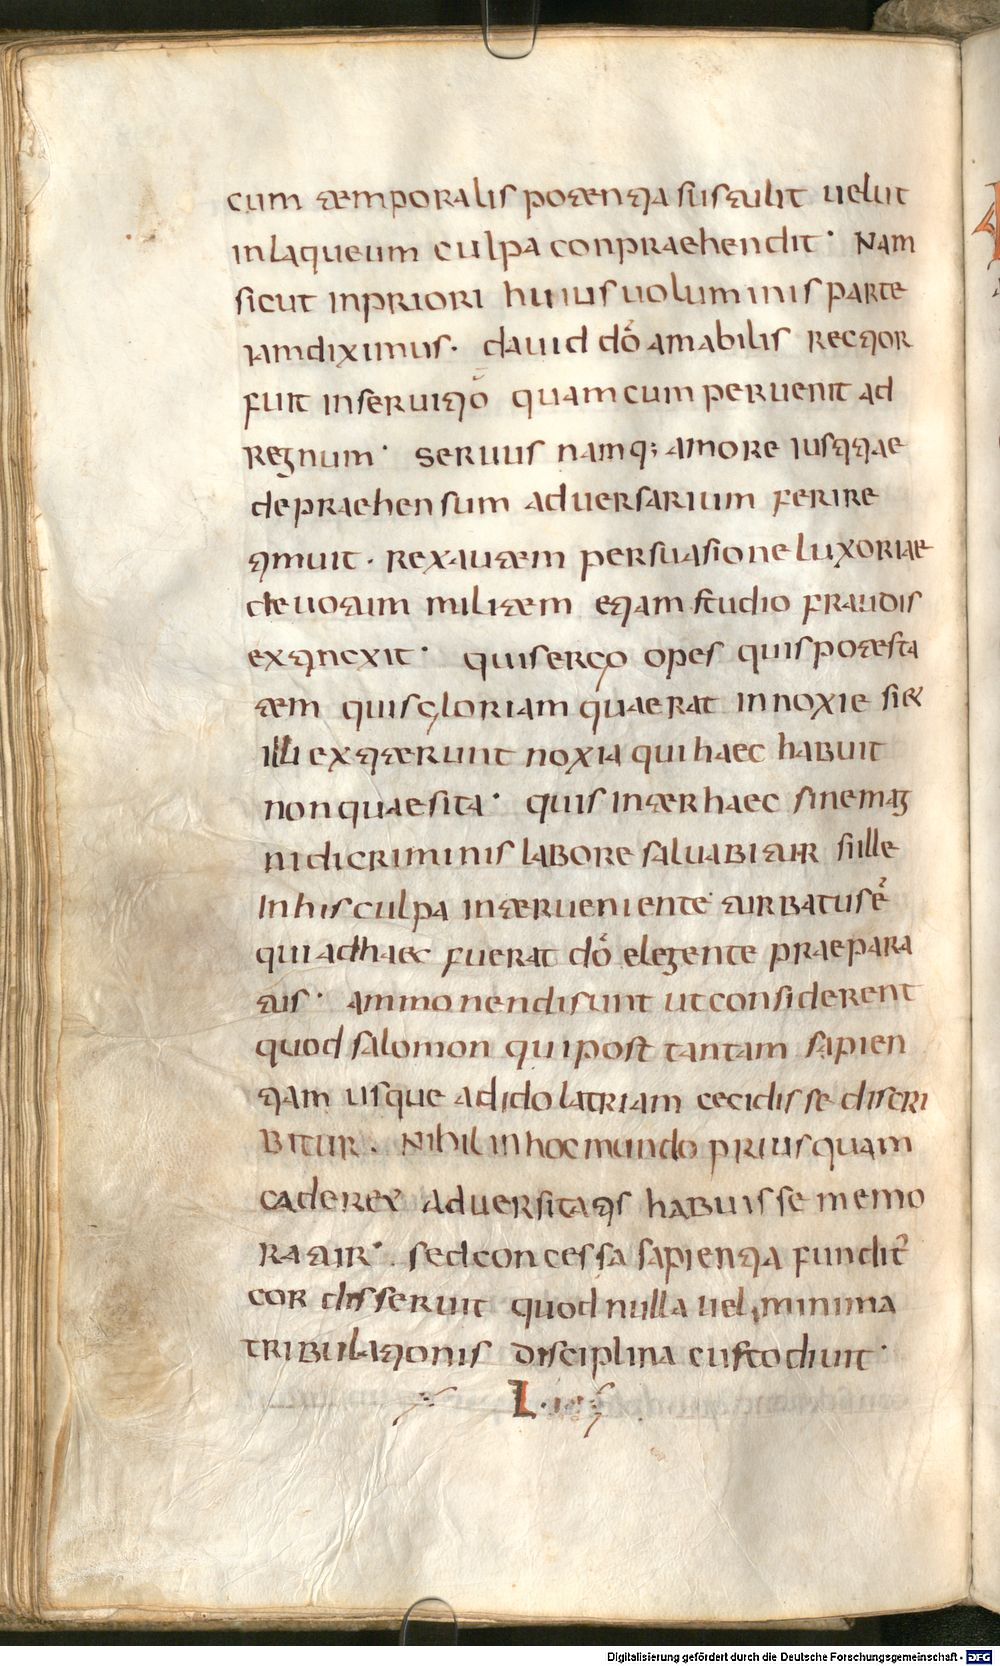 cum temporalis potentia sustulit uelut
inlaqueum culpa conpraehendit· Nam
sicut inpriori huius uoluminis parte
iamdiximus· dauid dō amabilis rector
fuit inseruitio quamcum peruenit ad
regnum· seruus namq; amore iustitiae
depraehensum aduersarium ferire
timuit· rexautem persuasione luxoriae
deuotum militem etiam studio fraudis
extincxit· quisergo opes quispotesta
tem quisgloriam quaerat innoxie si&
illi extiterunt noxia quihaec habuit
nonquaesita· quis interhaec sinemag
nidicriminis labore saluabitur sille
Inhisculpa interueniente turbatusē
quiadhaec fuerat dō elegente praepara
tus· ammonendisunt utconsiderent
quod salomon quipost tantam sapien
tiam usque adidolatriam cecidisse discri
bitur. Nihil inhocmundo priusquam
caderet aduersitatis habuisse memo
ratur· sedconcessa sapientia fundit
cor disseruit quodnulla uel,minima
tribulationis disciplina custodiuit·